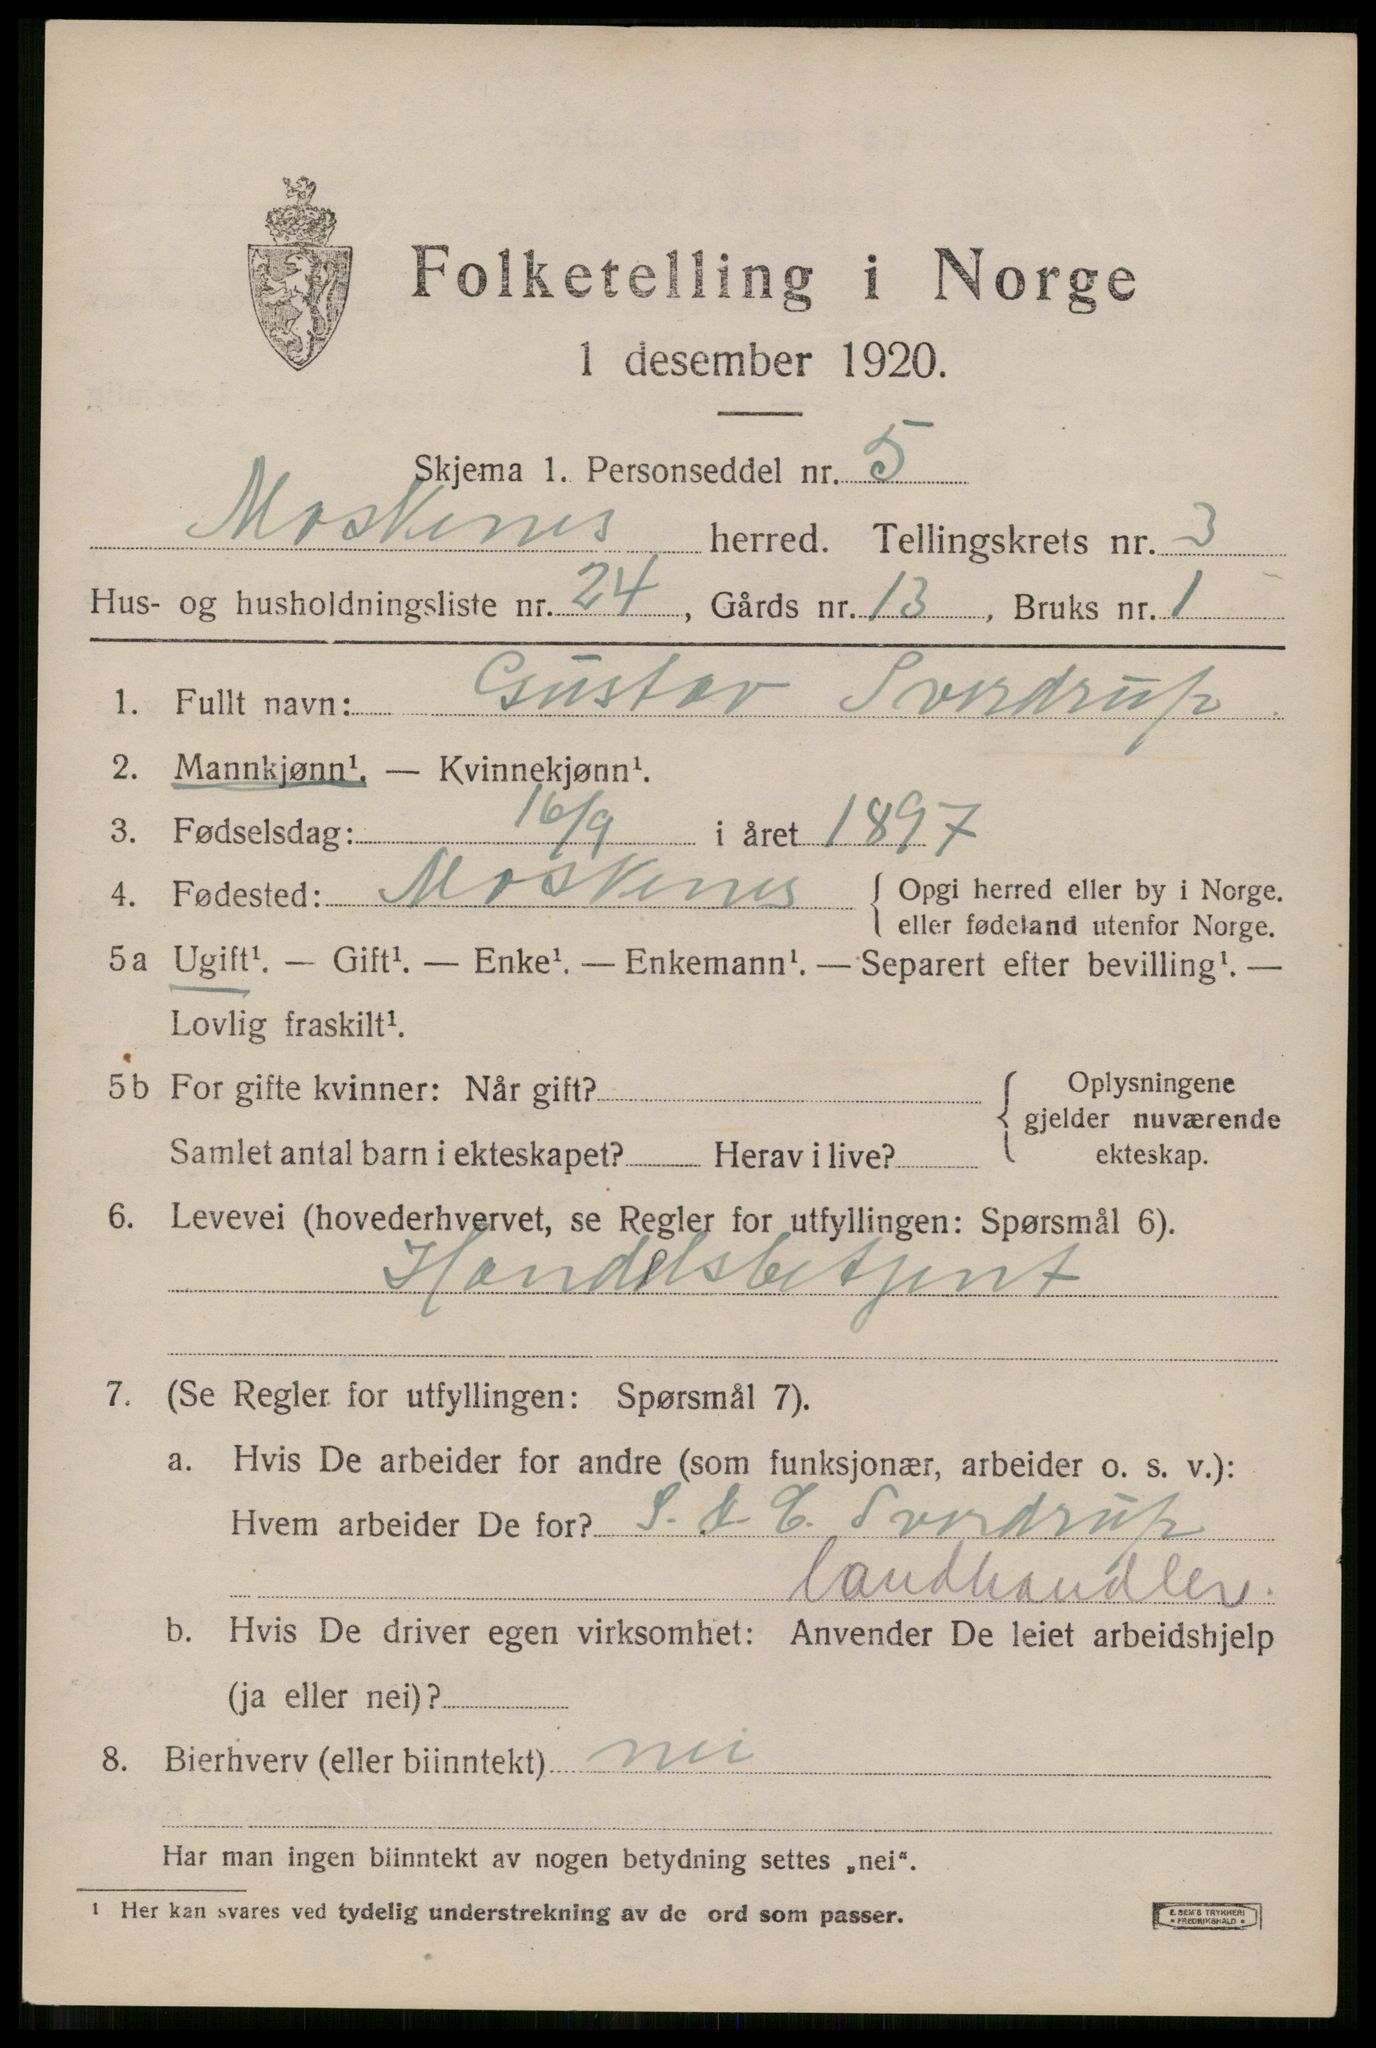 Folketelling i Norge
1 desember 1920.
Skjema 1. Personseddel nr. 5
Moskenes herred. Tellingskrets nr. 3
Hus- og husholdningsliste nr. 24, Gårds nr. 13, Bruks nr. 1
1. Fullt navn: Gustav Sverdrup
2. Mannkjønn¹. — Kvinnekjønn¹.
3. Fødselsdag: 16/9 i året 1897
4. Fødested: Moskenes { Opgi herred eller by i Norge.
eller fødeland utenfor Norge.
5a Ugift¹. — Gift¹. — Enke¹. — Enkemann¹. — Separert efter bevilling¹. —
Lovlig fraskilt¹.
5b For gifte kvinner: Når gift? { Oplysningene
gjelder nuværende
Samlet antal barn i ekteskapet? Herav i live?
ekteskap.
6. Levevei (hovederhvervet, se Regler for utfyllingen: Spørsmål 6).
Handelsbetjent
7. (Se Regler for utfyllingen: Spørsmål 7).
a. Hvis De arbeider for andre (som funksjonær, arbeider o. s. v.):
Hvem arbeider De for? S. & C. Sverdrup
landhandler.
b. Hvis De driver egen virksomhet: Anvender De leiet arbeidshjelp
(ja eller nei)?
8. Bierhverv (eller biinntekt) nei
Har man ingen biinntekt av nogen betydning settes „nei“.
¹ Her kan svares ved tydelig understrekning av de ord som passer.
E. SEM'S TRYKKERI
FREDRIKSHALD